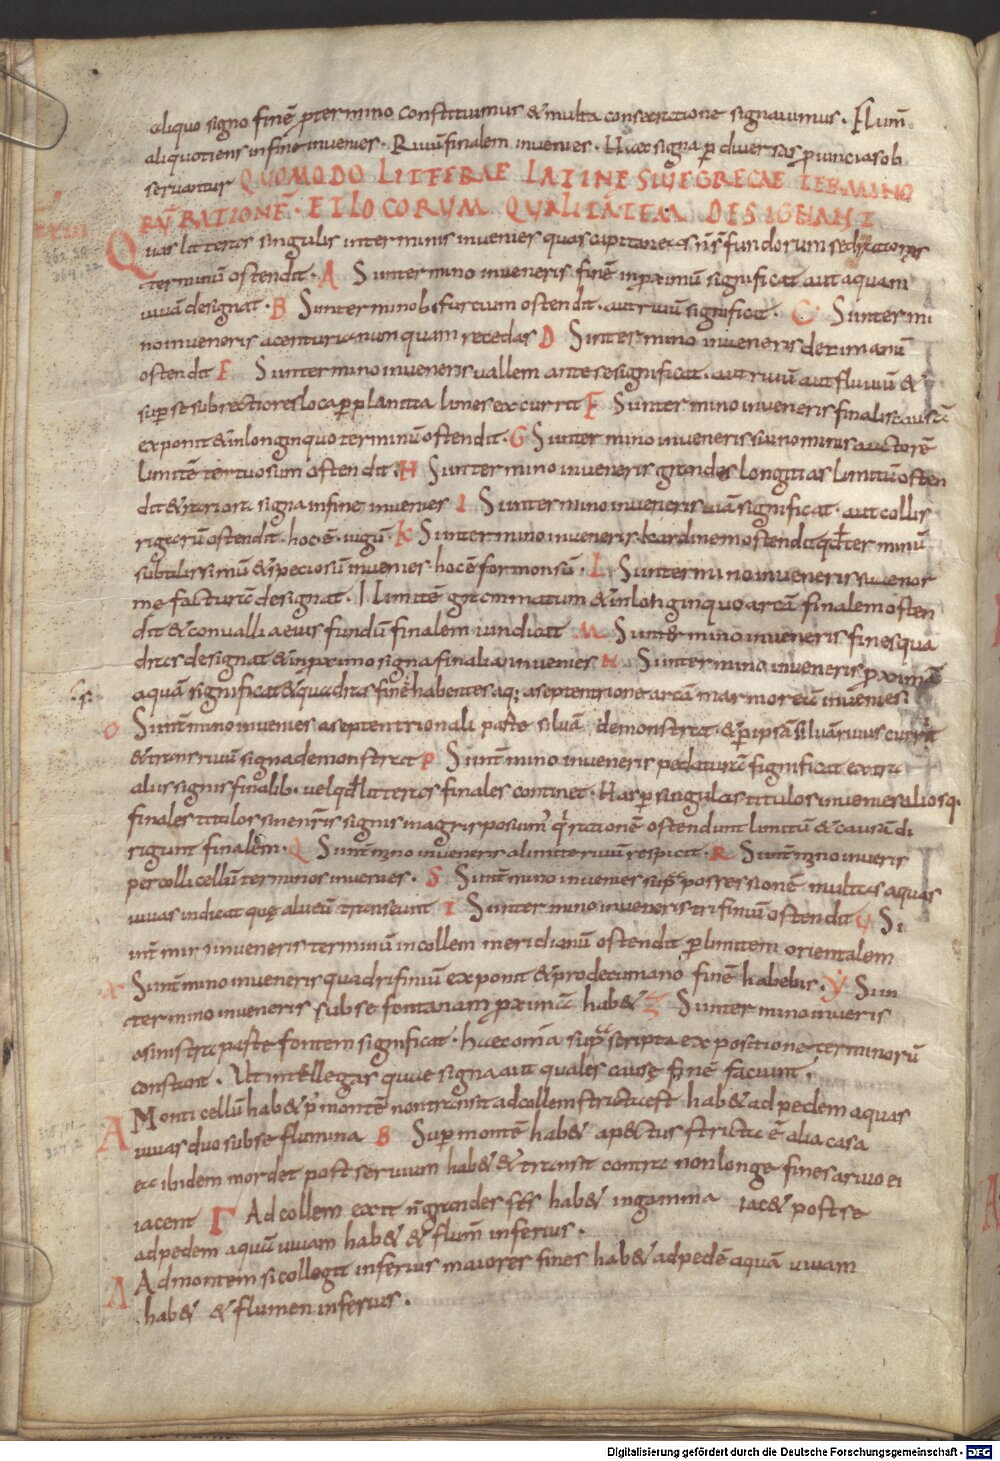 aliquo signo finē p̄termino constituimus & multa consecratione signauimus. Flum̄
aliquotiens in fine inuenies. Riuū finalem inuenies. Haec signa p̄ diuersas p̄uincias ob
seruantur QUOMODO LITTERAE LATINE SIUE GRECAE TERMINO
RŪ RATIONĒ. ET LOCORUM QUALITATEM DESIGNANT
Quas litteras singulis in terminis inuenies quas
terminū ostendit. A Si in termino inueneris. finē in p̄ximū significat aut aquam
uiuā designat. B Si in termino b. furcum ostendit. aut riuū significat. C Si in termi
no inueneris a centuria nunquam recedas D Si in termino inueneris decimanū
ostendit E Si in termino inueneris uallem ante se significat. aut riuū aut fluuiū &
sup̄ se subrectiores loca p̄ planitia limes excurrit F Si in termino inueneris finalis causā
exponit & in longinquo terminū ostendit. G Si in termino inueneris
limitē tortuosum ostendit. H Si in termino inueneris grandes longitias limitū osten
dit & signa in fine inuenies I Si in termino inueneris uiā significat. aut collis
rigorū ostendit. hoc ē. iugū. K Si in termino inueneris kardinem ostendit qđ terminū
subtilissimū & speciosū inuenies. hoc ē formonsū. L Si in termino inueneris
designat. limitē gammatum & in longinquo arcā finalem osten
dit & conuallia eius fundū finalem iundicat M Si in termino inueneris fines qua
dras designat & in p̄ximo signa finalia inuenies N Si in termino inueneris p̄ximā
aquā significat & quadras finē habentes aq; a septentrione arcā marmoreā inuenies.
O Si in t̄mino inuenies a septentrionali parte siluā demonstrat. & p̄ ipsā siluā riuus currit
& trans riuū signa demonstrat P Si in t̄mino inueneris pedaturā significat extra
alius signis finalib. uel qđ litteras finales continet. Has p̄ singulas titulos inuenies aliosq.
finales titulos rationē ostendunt limitū & causā di
rigunt finalem. Q Si in t̄mino inueneris a limite riuū respicit. R Si in t̄mino inueris
per collicellū terminos inuenies. S Si in t̄mino inuenies sup̄ possessionē multas aquas
uiuas indicat quę alueū transeunt T Si in termino inueneris trifiniū ostendit V Si
in t̄ inueneris terminū in collem meridianū ostendit p̄ limitem orientalem
X Si in t̄mino inueneris quadrifiniū exponit & pro decumano finē habebis. Y Si in
termino inueneris sub se fontanam p̄ximā hab& Z Si in termino inueris
a sinistra parte fontem significat. haec om̄ia supra scripta expositione terminorū
constant. Ut intellegas quae signa aut quales causę finē faciunt.
A Monticellū hab& p̄ montē non transit ad collem stricta est hab& ad pedem aquas
uiuas duo sub se flumina B Sup̄ montē hab& apectus stricta ē alia casa
ibidem mordet post se riuum hab& & transit contra non longe fines a riuo ei
iacent Γ Ad collem exit n̄ grandes hab& in gamma iac& post se
ad pedem aquā uiuam hab& & flum̄ inferius.
Δ Ad montem si collegit inferius maiores fines hab& ad pedē aquā uiuam
hab& & flumen inferius.
Digitalisierung gefördert durch die Deutsche Forschungsgemeinschaft - DFG